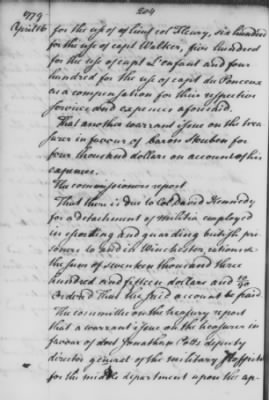 1779 204
April 16
for the use of lieut col Fleury, six hundred
for the use of capt Walker, five hundred
for the use of capt L'enfant and four
hundred for the use of capt du Ponceau
as a compensation for their respective
services and expences aforesaid.
That another warrant issue on the trea
surer in favour of baron Steuben for
four thousand dollars on account of his
expences.
The commissioners report
That there is due to Col. David Kennedy
for a detachment of militia employed
in escorting and guarding british pri
soners to and in Winchester, rations &c
the sum of seventeen thousand three
hundred and fifteen dollars and /90
Ordered That the said account be paid
The committee on the treasury report
that a warrant issue on the treasurer in
favour of doct Jonathan Potts deputy
director general of the military Hospitals
for the middle department upon his ap-